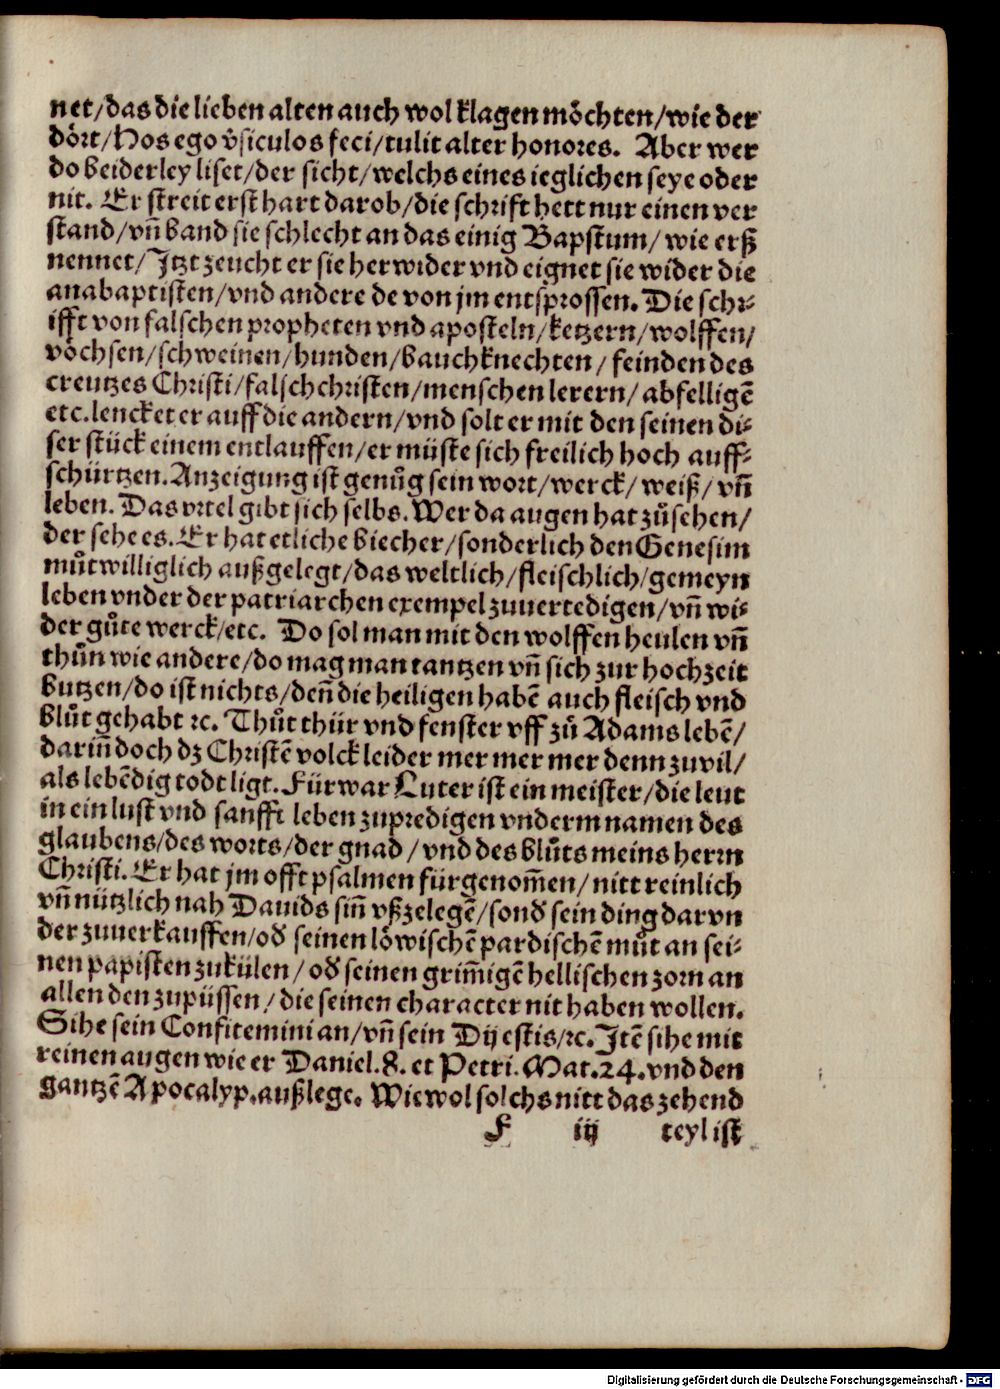 net/das die lieben alten auch wol klagen möchten/wie der
dört/Hos ego v̄siculos feci/tulit alter honores. Aber wer
do beiderley liset/der sicht/welchs eines ieglichen seye oder
nit. Er streit erst hart darob/die schrift hett nur einen ver
stand/vn̄ band sie schlecht an das einig Bapstum/wie erß
nennet/Jtzt zeucht er sie herwider vnd eignet sie wider die
anabaptisten/vnd andere de von jm entsprossen. Die schr⸗
ifft von falschen propheten vnd aposteln/ketzern/wolffen/
vöchsen/schweinen/hunden/bauchknechten/feinden des
creutzes Christi/falschchristen/menschen lerern/abfelligē
etc. lencket er auff die andern/vnd solt er mit den seinen di⸗
ser stück einem entlauffen/er müste sich freilich hoch auff⸗
schürtzen. Anzeigung ist genůg sein wort/werck/weiß/vn̄
leben. Das vrtel gibt sich selbs. Wer da augen hat zůsehen/
der sehe es. Er hat etliche biecher/sonderlich den Genesim
můtwilliglich außgelegt/das weltlich/fleischlich/gemeyn
leben vnder der patriarchen exempel zuuertedigen/vn̄ wi⸗
der gůte werck/etc. Do sol man mit den wolffen heulen vn̄
thůn wie andere/do mag man tantzen vn̄ sich zur hochzeit
butzen/do ist nichts/den̄ die heiligen habē auch fleisch vnd
blůt gehabt ⁊c. Thůt thür vnd fenster vff zů Adams lebē/
darin̄ doch dz Christē volck leider mer mer mer denn zuvil/
als lebēdig todt ligt. Fürwar Luter ist ein meister/die leut
in ein lust vnd sanfft leben zupredigen vnderm namen des
glaubens/des worts/der gnad/vnd des blůts meins herrn
Christi. Er hat jm offt psalmen fürgenom̄en/nitt reinlich
vn̄ nützlich nah Dauids sin̄ vßzelegē/sond̄ sein ding darvn
der zuuerkauffen/od̄ seinen löwischē pardischē můt an sei⸗
nen papisten zukülen/od̄ seinen grim̄igē hellischen zorn an
allen den zupüssen/die seinen character nit haben wollen.
Sihe sein Confitemini an/vn̄ sein Dij estis/⁊c. Jtē sihe mit
reinen augen wie er Daniel. 8. et Petri. Mat. 24. vnd den
gantzē Apocalyp. außlege. Wiewol solchs nitt das zehend
F iij teyl ist
Digitalisierung gefördert durch die Deutsche Forschungsgemeinschaft - DFG